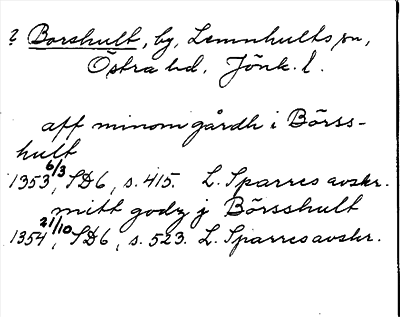 ? Borshult, by, Lemnhults sn,
Östra hd, Jönk. l.
aff minom gårdh i Börss-
hult
1353 6/3, SD6, s. 415. L. Sparres avskr.
mitt godz j Börsshult
1354 21/10, SD6, s. 523. L. Sparres avskr.